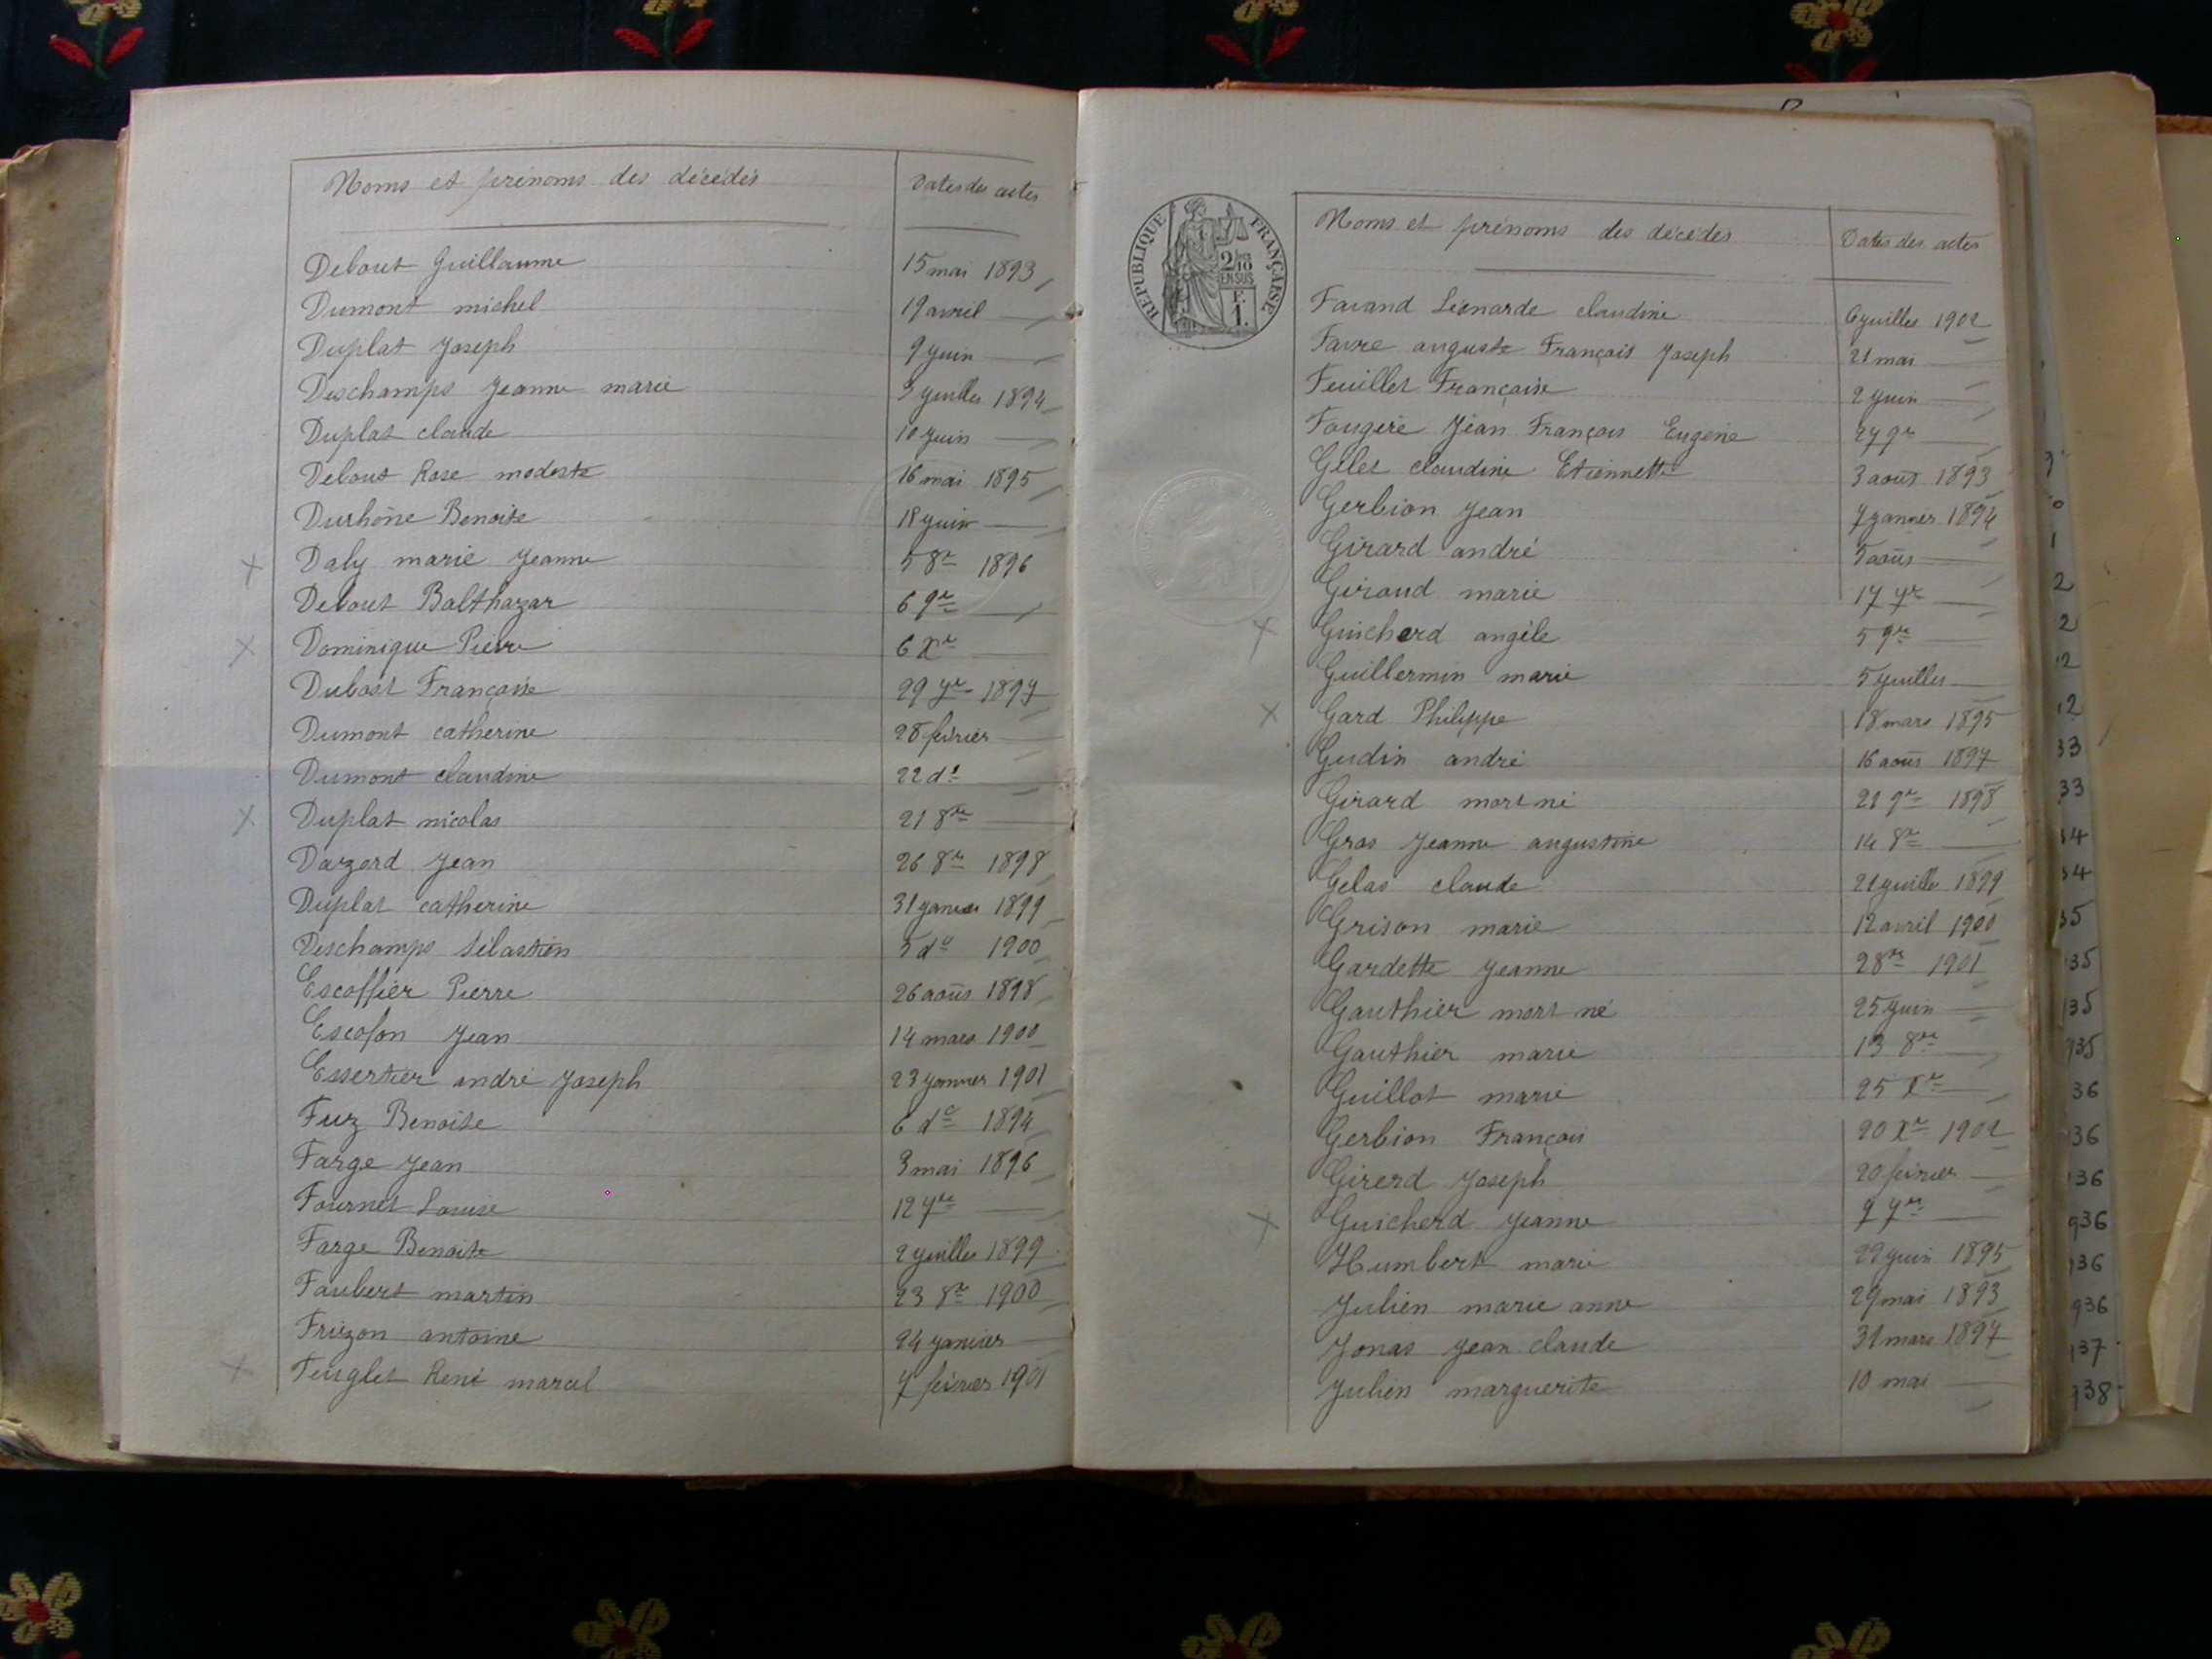 Noms et prénoms des décédés Dates des actes
Debout Guillaume 15 mai 1893
Dumont michel 19 avril —
Duplat Joseph 9 juin —
Deschamps Jeanne marie 3 juillet 1894
Duplat claude 10 juin —
Debout Rose modeste 16 mai 1895
Durhône Benoite 18 juin —
x Daly marie Jeanne 5 8re 1896
Debout Balthazar 6 9re —
x Dominique Pierre 6 Xre —
Dubost Françoise 29 7re 1897
Dumont catherine 28 février —
Dumont claudine 22 do —
x Duplat nicolas 21 8re —
Dazord Jean 26 8re 1898
Duplat catherine 31 janvier 1899
Deschamps Sébastien 5 do 1900
Escoffier Pierre 26 août 1898
Escofon Jean 14 mars 1900
Essertier andré Joseph 23 janvier 1901
Fuz Benoite 6 do 1894
Farge Jean 3 mai 1896
Fournet Louise 12 7re —
Farge Benoite 2 juillet 1899
Faubert martin 23 8re 1900
Frizon antoine 24 janvier —
x Feuglet René marcel 7 février 1901
RÉPUBLIQUE FRANÇAISE
2/10
EN SUS
F.
1.
Noms et prénoms des décédés Dates des actes
Favand Léonarde claudine 6 juillet 1902
Favre auguste François Joseph 21 mai —
Feuillet Françoise 2 juin —
Fougère Jean François Eugène 27 9re —
Gelet claudine Etiennette 3 août 1893
Gerbion Jean 7 janvier 1894
Girard andré 5 août —
Giroud marie 17 7re —
x Guicherd angèle 5 9re —
Guillermin marie 5 juillet —
x Gard Philippe 18 mars 1895
Gudin andré 16 août 1897
Girard mort né 21 9re 1898
Gros Jeanne augustine 14 8re —
Gelas claude 21 juillet 1899
Grison marie 12 avril 1900
Gardette Jeanne 28re 1901
Gauthier mort né 25 juin —
Gauthier marie 13 8re —
Guillot marie 25 Xre —
Gerbion François 20 Xre 1902
Girerd Joseph 20 février —
x Guicherd Jeanne 9 7re —
Humbert marie 22 juin 1895
Julien marie anne 29 mai 1893
Jonas Jean claude 31 mars 1897
Julien marguerite 10 mai —
1
2
2
12
12
33
33
34
34
35
35
35
935
36
36
36
936
36
936
937
938